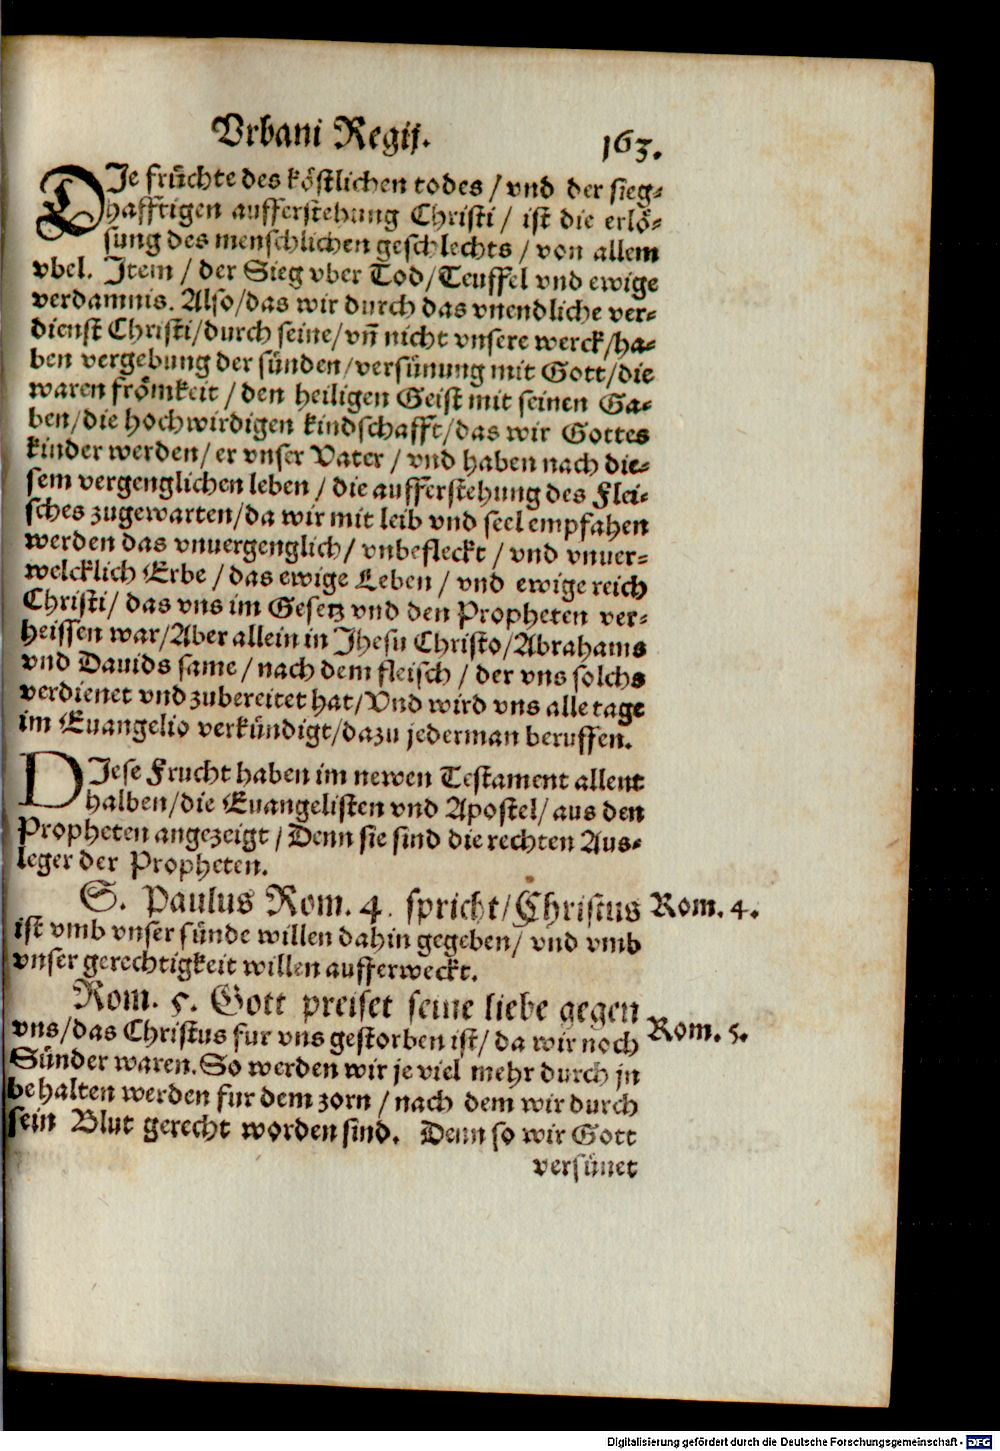 Vrbani Regij.
163.
DIe früchte des köstlichen todes / vnd der sieg-
hafftigen aufferstehung Christi / ist die erlö-
sung des menschlichen geschlechts / von allem
vbel. Item / der Sieg vber Tod/Teuffel vnd ewige
verdamnis. Also/das wir durch das vnendliche ver-
dienst Christi/durch seine/vn̄ nicht vnsere werck/ha-
ben vergebung der sünden/versünung mit Gott/die
waren frömkeit / den heiligen Geist mit seinen Ga-
ben/die hochwirdigen kindschafft/das wir Gottes
kinder werden/ er vnser Vater / vnd haben nach die-
sem vergenglichen leben / die aufferstehung des Flei-
sches zugewarten/da wir mit leib vnd seel empfahen
werden das vnuergenglich/ vnbefleckt / vnd vnuer-
welcklich Erbe / das ewige Leben / vnd ewige reich
Christi/ das vns im Gesetz vnd den Propheten ver-
heissen war/Aber allein in Jhesu Christo/Abrahams
vnd Dauids same / nach dem fleisch / der vns solchs
verdienet vnd zubereitet hat/Vnd wird vns alle tage
im Euangelio verkündigt/dazu jederman beruffen.
DIese Frucht haben im newen Testament allent
halben/die Euangelisten vnd Apostel/ aus den
Propheten angezeigt / Denn sie sind die rechten Aus-
leger der Propheten.
S. Paulus Rom. 4. spricht/Christus
Rom. 4.
ist vmb vnser sünde willen dahin gegeben/ vnd vmb
vnser gerechtigkeit willen aufferweckt.
Rom. 5. Gott preiset seine liebe gegen
Rom. 5.
vns/das Christus fur vns gestorben ist/ da wir noch
Sünder waren. So werden wir je viel mehr durch jn
behalten werden fur dem zorn / nach dem wir durch
sein Blut gerecht worden sind. Denn so wir Gott
versünet
Digitalisierung gefördert durch die Deutsche Forschungsgemeinschaft - DFG